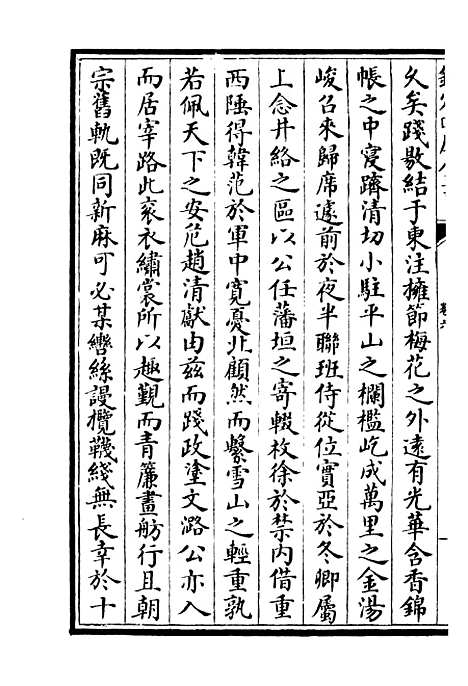 久矣踐敭結于東注擁節梅花之外遠有光華含香錦
帳之中寖躋清切小駐平山之欄檻屹成萬里之金湯
峻召來歸席遽前於夜半聯班侍從位實亞於冬卿屬
上念井絡之區以公任藩垣之寄輟枚徐於禁内借重
西陲得韓范於軍中寛憂北顧然而繫雪山之輕重孰
若佩天下之安危趙清獻由兹而踐政塗文潞公亦入
而居宰路此衮衣繡裳所以趣覲而青簾畫舫行且朝
宗舊軌既同新麻可必某轡絲謾攬韈綫無長幸於十